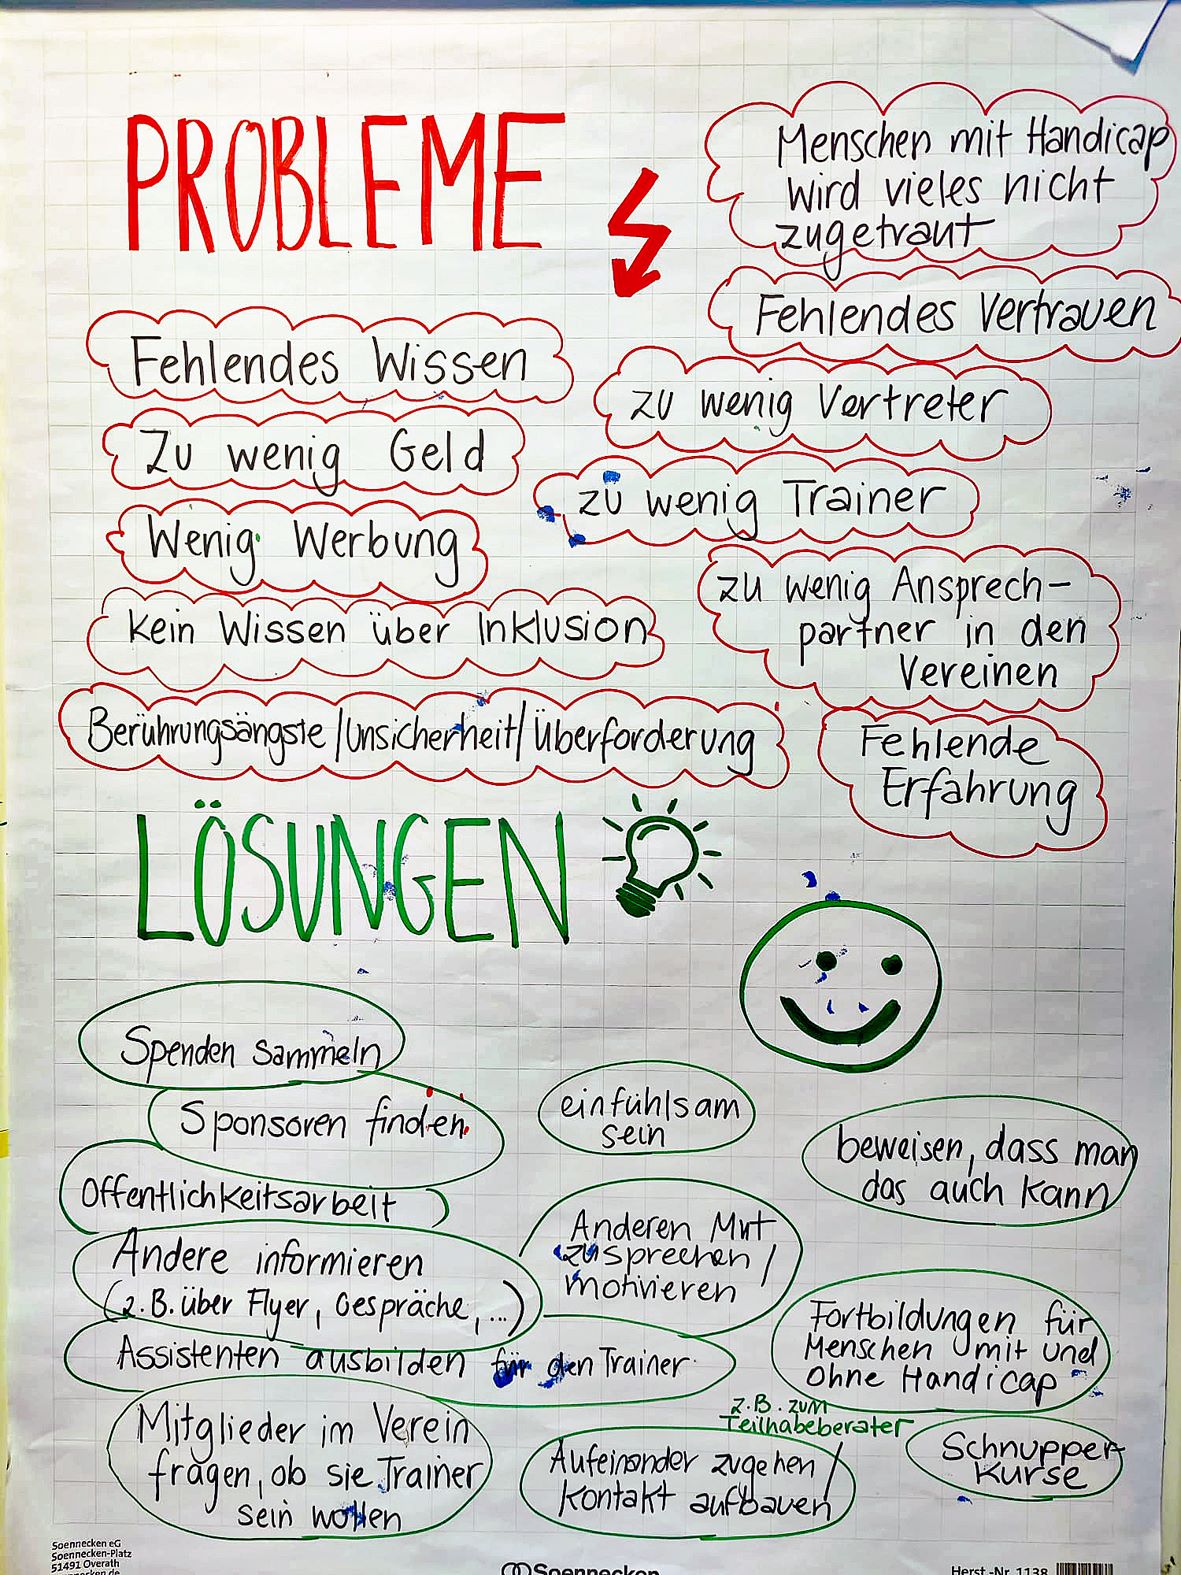 PROBLEME
Menschen mit Handicap
wird vieles nicht
zugetraut
Fehlendes Vertrauen
Fehlendes Wissen
zu wenig Vertreter
Zu wenig Geld
zu wenig Trainer
Wenig Werbung
zu wenig Ansprech-
partner in den
Vereinen
kein Wissen über Inklusion
Berührungsängste/Unsicherheit/Überforderung
Fehlende
Erfahrung
LÖSUNGEN
Spenden sammeln
Sponsoren finden
einfühlsam
sein
beweisen, dass man
das auch kann
Öffentlichkeitsarbeit
Anderen Mut
zusprechen/
motivieren
Andere informieren
(z.B. über Flyer, Gespräche,...)
Fortbildungen für
Menschen mit und
ohne Handicap
z.B. zum
Teilhabeberater
Assistenten ausbilden für den Trainer
Mitglieder im Verein
fragen, ob sie Trainer
sein wollen
Aufeinander zugehen/
Kontakt aufbauen
Schnupper
Kurse
Soennecken eG
Soennecken-Platz
51491 Overath
Soennecken
Herst.-Nr. 1138